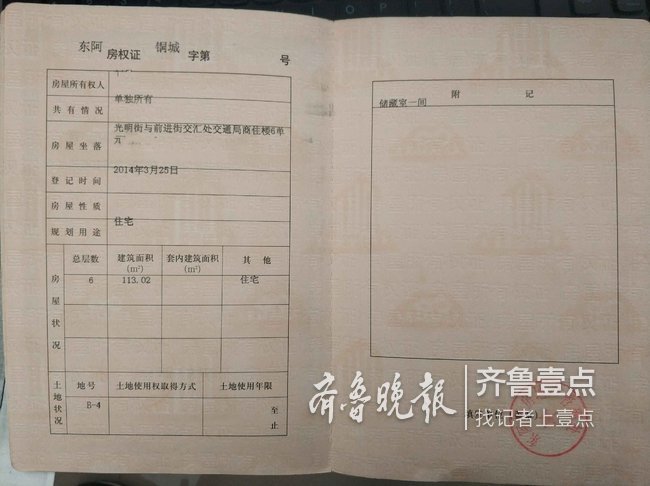 东阿 房权证 铜城 字第 号
房屋所有权人
共有情况 单独所有
房屋坐落 光明街与前进街交汇处交通局商住楼6单
元
登记时间 2014年3月25日
房屋性质
规划用途 住宅
房屋状况 总层数 建筑面积(m²) 套内建筑面积(m²) 其他
6 113.02 住宅
土地状况 地号 土地使用权取得方式 土地使用年限
E-4 至
止
附记
储藏室一间
齐鲁晚报 齐鲁壹点
找记者上壹点